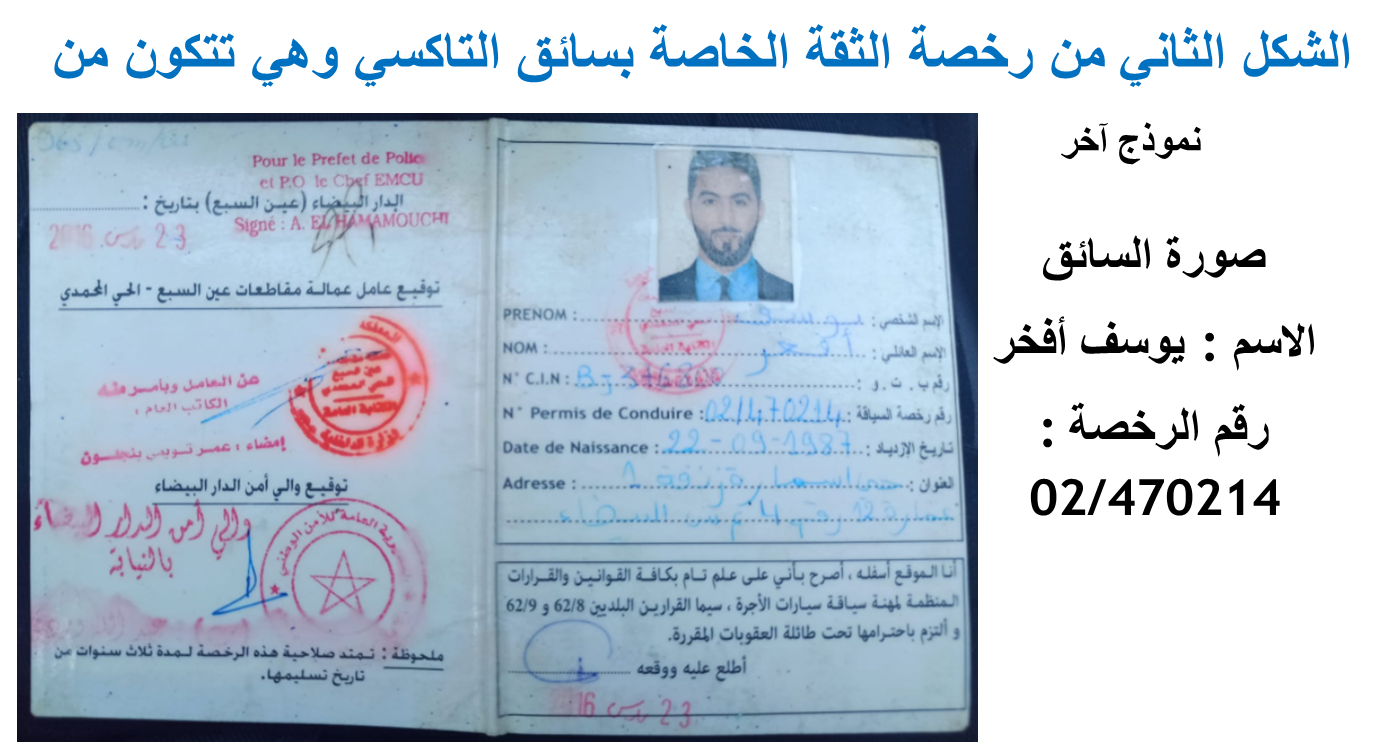 الشكل الثاني من رخصة الثقة الخاصة بسائق التاكسي وهي تتكون من
نموذج آخر
صورة السائق
الاسم : يوسف أفخر
رقم الرخصة :
02/470214
Pour le Prefet de Police
et P.O le Chef EMCU
الدار البيضاء (عين السبع) بتاريخ :
Signé : A. EL HAMAMOUCHI
23 مارس 2016
توقيع عامل عمالة مقاطعات عين السبع - الحي المحمدي
عن العامل وبأمر منه
الكاتب العام :
إمضاء : عمر تويمي بنجلون
توقيع والي أمن الدار البيضاء
والي أمن الدار البيضاء
بالنيابة
ملحوظة : تمتد صلاحية هذه الرخصة لمدة ثلاث سنوات من
تاريخ تسليمها.
PRENOM : يوسف الاسم الشخصي :
NOM : أفخر الاسم العائلي :
N° C.I.N : رقم ب . ت . و :
N° Permis de Conduire : 02/470214 رقم رخصة السياقة :
Date de Naissance : 22-09-1987 تاريخ الإزدياد :
Adresse : العنوان :
أنا الموقع أسفله ، أصرح بأني على علم تام بكافة القوانين والقرارات
المنظمة لمهنة سياقة سيارات الأجرة ، سيما القرارين البلديين 62/8 و 62/9
و ألتزم باحترامها تحت طائلة العقوبات المقررة.
أطلع عليه ووقعه
23 مارس 2016